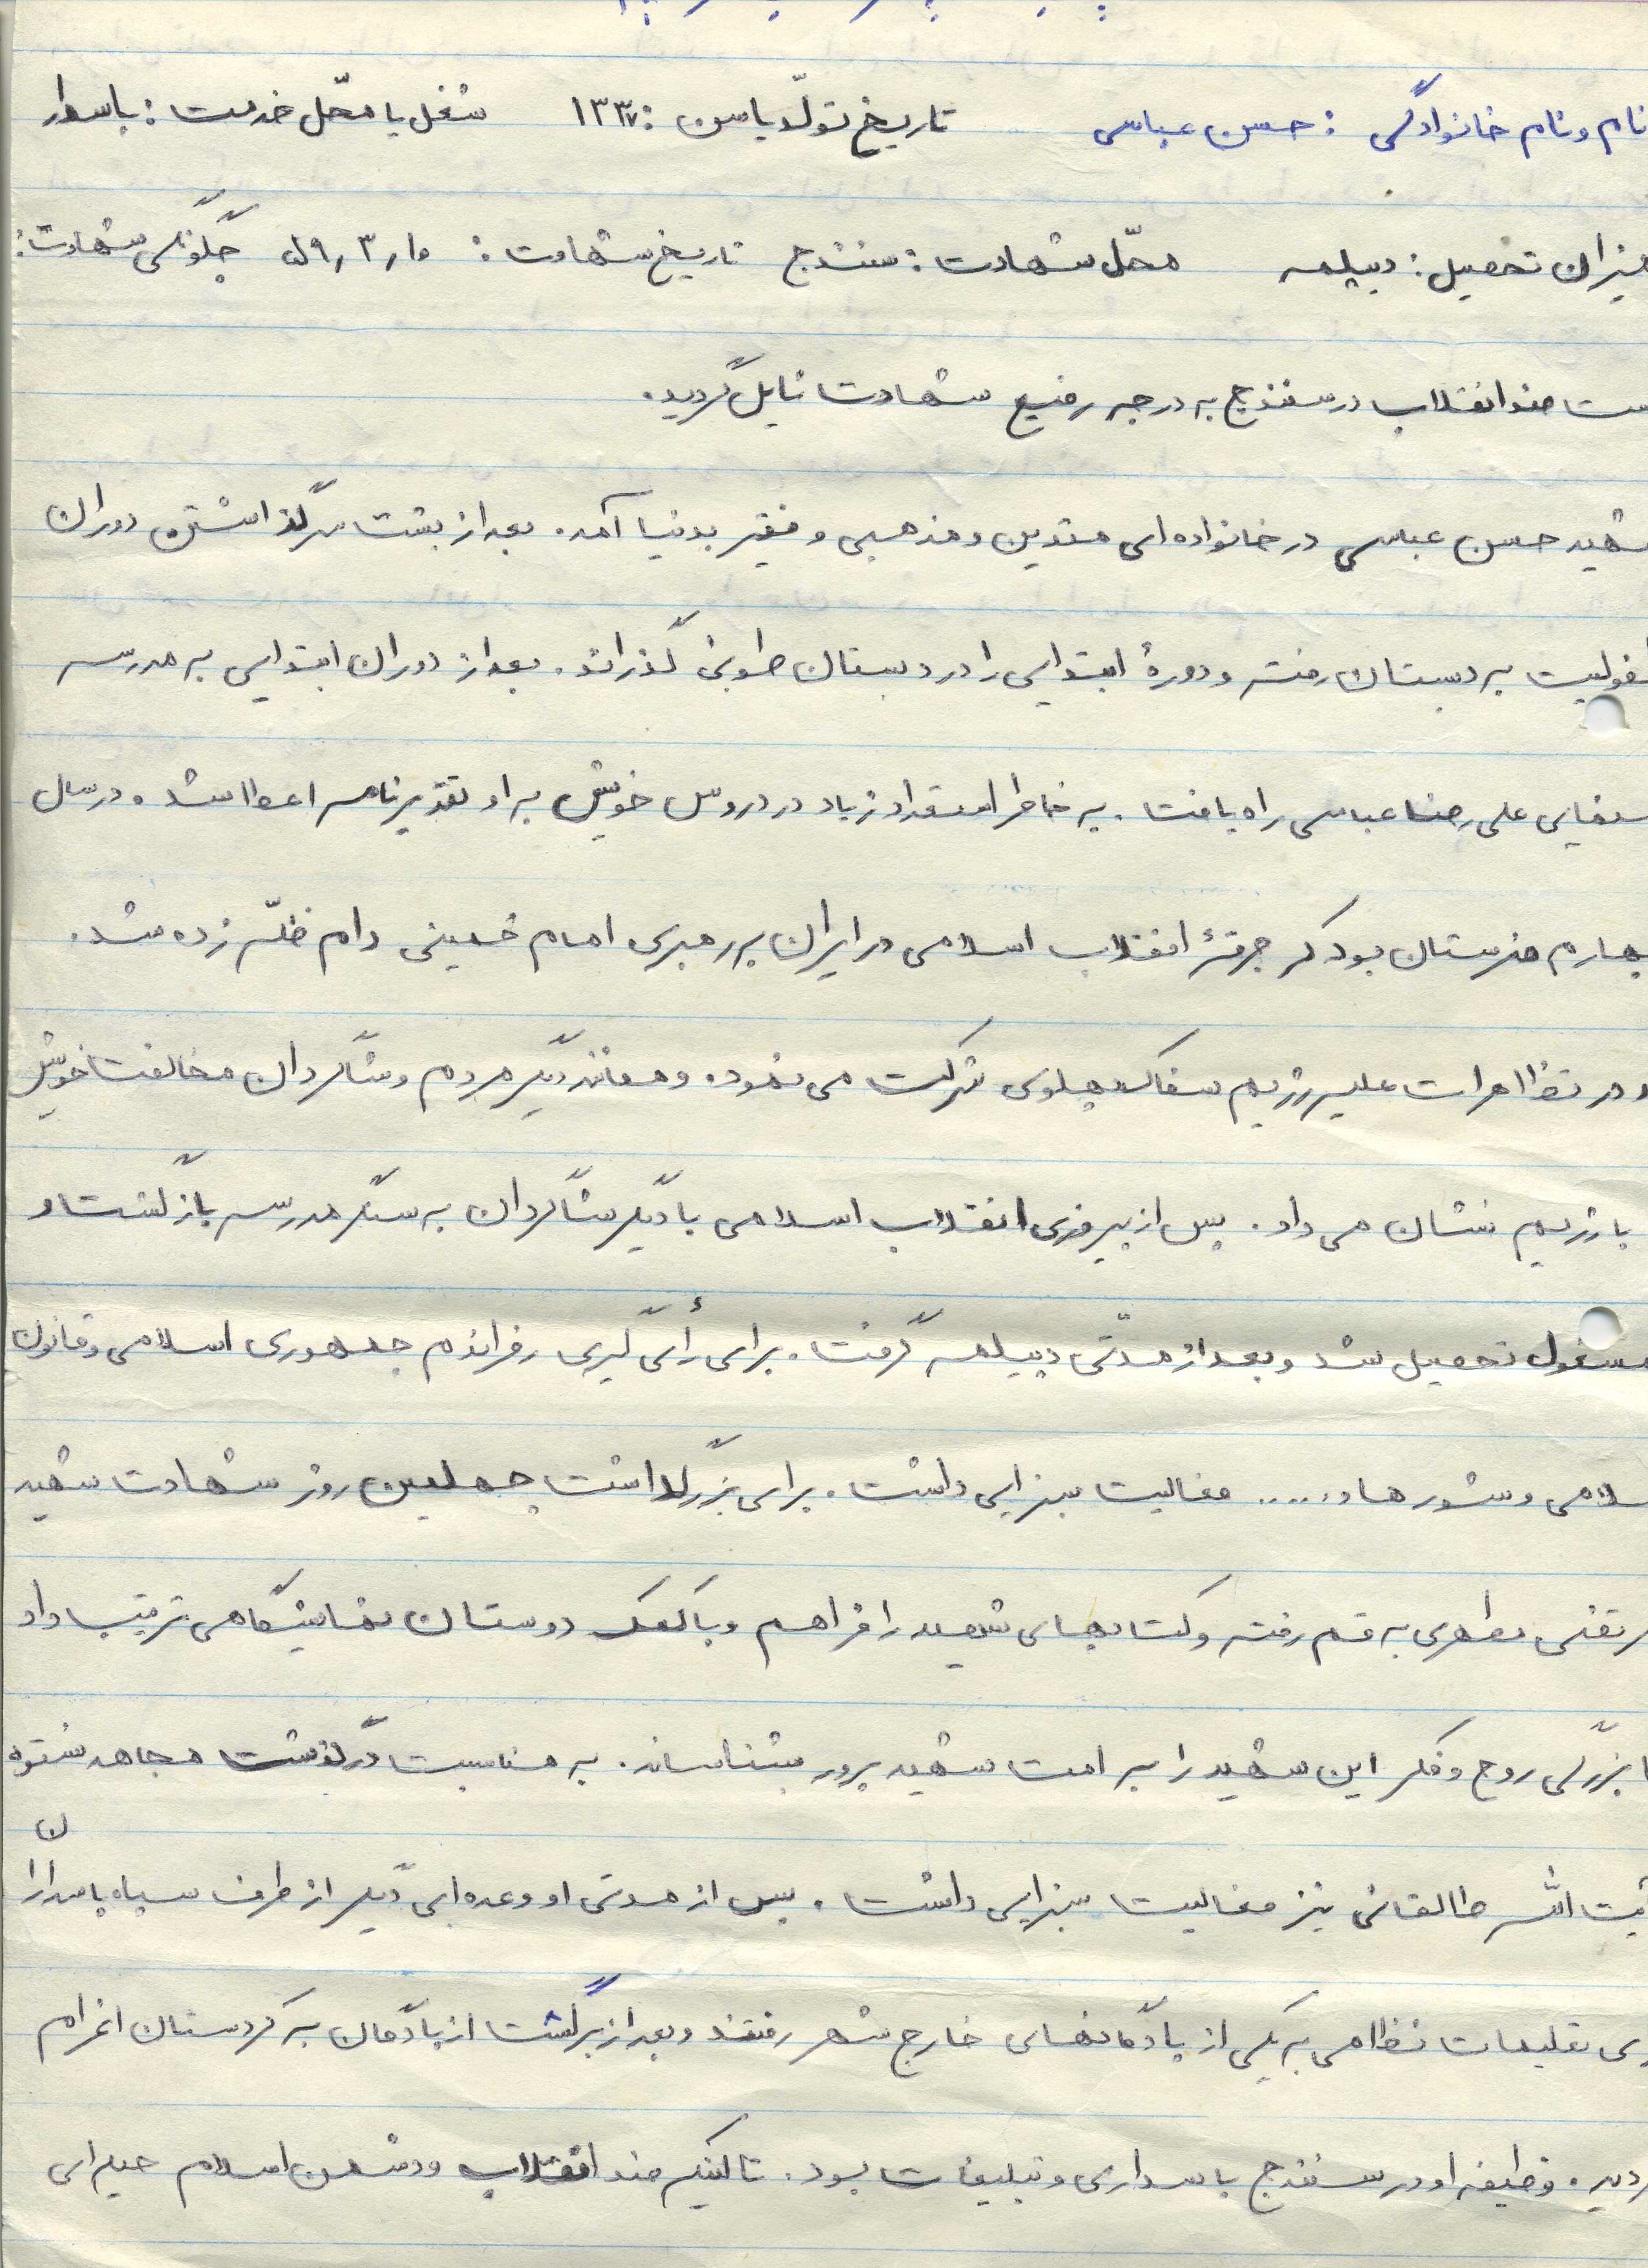 نام و نام خانوادگی : حسن عباسی تاریخ تولّد یا سن : ۱۳۳۷ شغل یا محّل خدمت : پاسدار
میزان تحصیل : دیپلمه محّل شهادت : سنندج تاریخ شهادت : چگونگی شهادت :
ست ضد انقلاب در سنندج به درجه رفیع شهادت نایل گردید.
شهید حسن عباسی در خانواده ای متدین و مذهبی و فقیر بدنیا آمد. بعد از پشت سر گذاشتن دوران
طفولیت به دبستان رفته و دورهٔ ابتدایی را در دبستان طوبی گذراند. بعد از دوران ابتدایی به مدرسه
علی رضا عباسی راه یافت. به خاطر استعداد زیاد در دروس خویش به او تقدیرنامه اعطا شد. در سال
چهارم هنرستان بود که جرقهٔ انقلاب اسلامی در ایران به رهبری امام خمینی دام ظلّه زده شد.
و در تظاهرات علیه رژیم سفاک پهلوی شرکت می نمود. و همانند دیگر مردم و شاگردان مخالفت خویش
با رژیم نشان می داد. پس از پیروزی انقلاب اسلامی با دیگر شاگردان به سنگر مدرسه بازگشت و
مشغول تحصیل شد و بعد از مدّتی دیپلمه گرفت. برای رأی گیری رفراندم جمهوری اسلامی و قانون
سلامی و شورها و..... فعالیت بسزایی داشت. برای بزرگداشت چهلمین روز شهادت شهید
مرتضی مطهری به قم رفته و کتابهای شهید را فراهم و با کمک دوستان نمایشگاهی ترتیب داد
تا بزرگی روح و فکر این شهید را به امت شهید پرور بشناساند. به مناسبت درگذشت مجاهد نستوه
آیت الله طالقانی نیز فعالیت بسزایی داشت. پس از مدتی او و عده ای دیگر از طرف سپاه پاسداران
ری تعلیمات نظامی به یکی از پادگانهای خارج شهر رفتند و بعد از برگشت از پادگان به کردستان اعزام
ردید. وظیفه او در سنندج پاسداری و تبلیغات بود. تا اینکه ضد انقلاب و دشمن اسلام